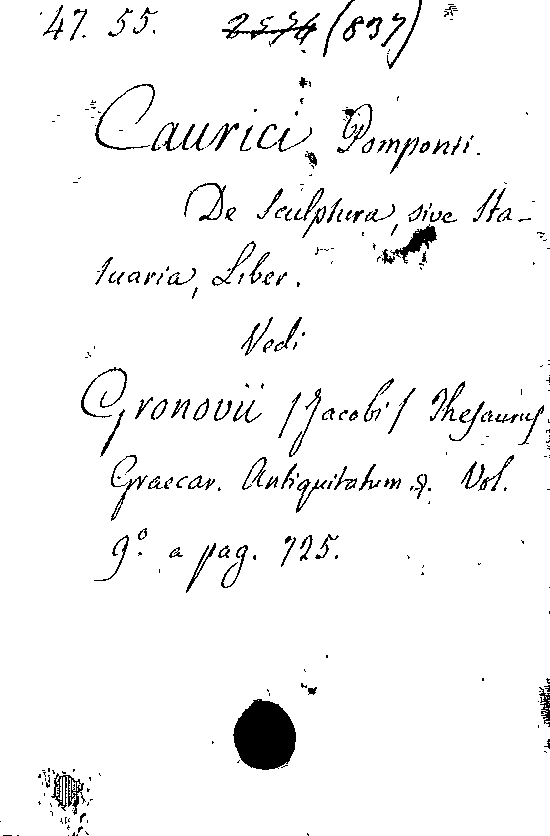 47. 55. 2574 (837)
Caurici Pomponii.
De Sculptura, sive Sta-
tuaria, Liber.
Vedi
Gronovii /Jacobi/ Thesaurus
Graecar. Antiquitatum &. Vol.
9.º a pag. 725.